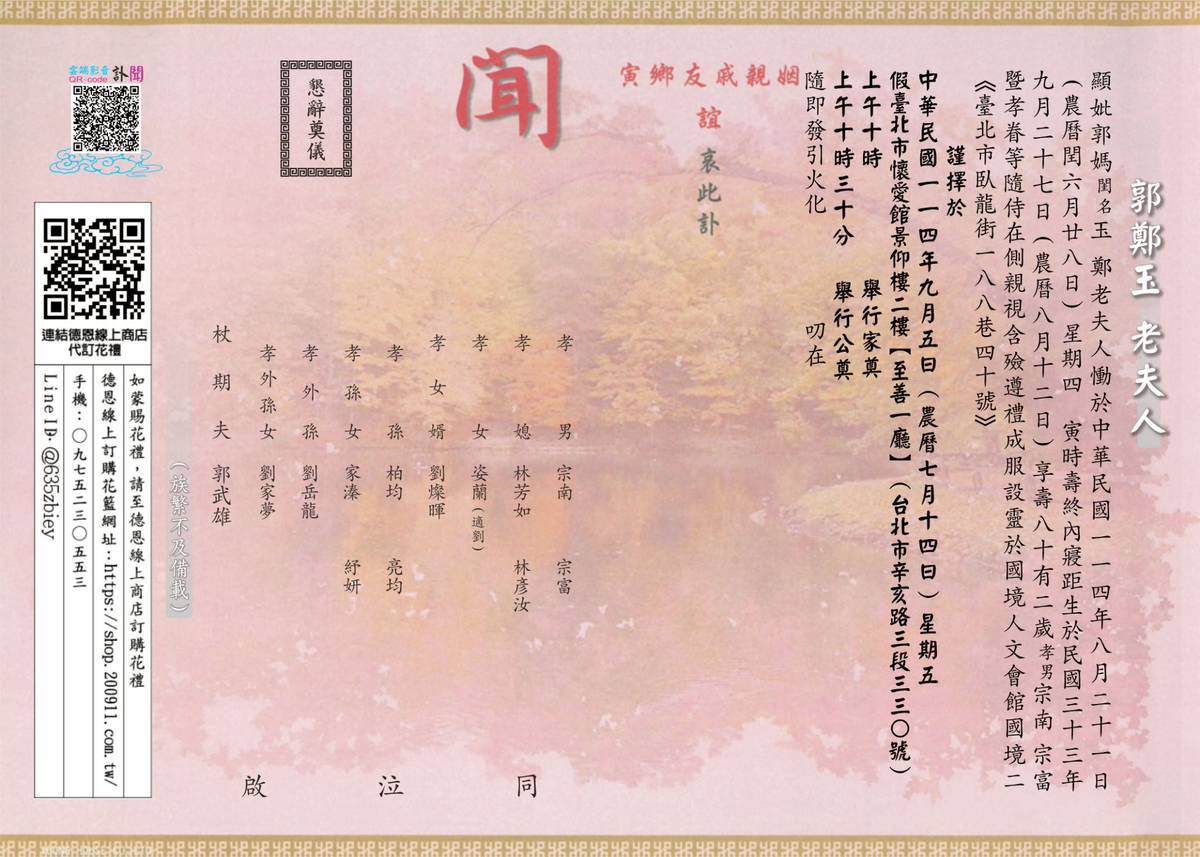 郭鄭玉 老夫人
顯妣郭媽閨名玉 鄭老夫人慟於中華民國一一四年八月二十一日
(農曆閏六月廿八日)星期四 寅時壽終內寢距生於民國三十三年
九月二十七日(農曆八月十二日)享壽八十有二歲孝男宗南 宗富
暨孝眷等隨侍在側親視含殮遵禮成服設靈於國境人文會館國境二
《臺北市臥龍街一八八巷四十號》
謹擇於
中華民國一一四年九月五日(農曆七月十四日)星期五
假臺北市懷愛館景仰樓二樓【至善一廳】(台北市辛亥路三段三三〇號)
上午十時 舉行家奠
上午十時三十分 舉行公奠
隨即發引火化 叨在
寅鄉友戚親姻
誼 哀此訃
聞
孝男 宗南 宗富
孝媳 林芳如 林彥汝
孝女 姿蘭(適劉)
孝女婿 劉燦暉
孝孫 柏均 亮均
孝孫女 家溱 紓妍
孝外孫 劉岳龍
孝外孫女 劉家夢
杖期夫 郭武雄
(族繁不及備載)
同泣啟
懇辭奠儀
雲端影音
QR-code 訃聞
連結德恩線上商店
代訂花禮
如蒙賜花禮,請至德恩線上商店訂購花禮
德恩線上訂購花籃網址:https://shop.200911.com.tw/
手機:〇九七五二三〇五五三
Line ID: @635zbiey